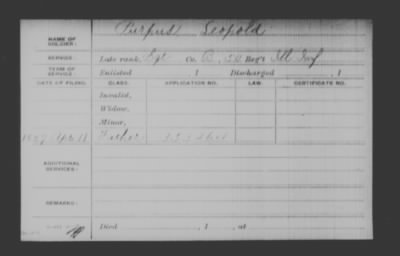 NAME OF SOLDIER: Purpus Leopold
SERVICE: Late rank, Sgt Co. B, Reg't Ill Inf
TERM OF SERVICE: Enlisted , 1 Discharged , 1
DATE OF FILING. CLASS. APPLICATION NO. LAW. CERTIFICATE NO.
Invalid,
Widow,
Minor,
Father
ADDITIONAL SERVICES:
REMARKS:
Died , 1 , at